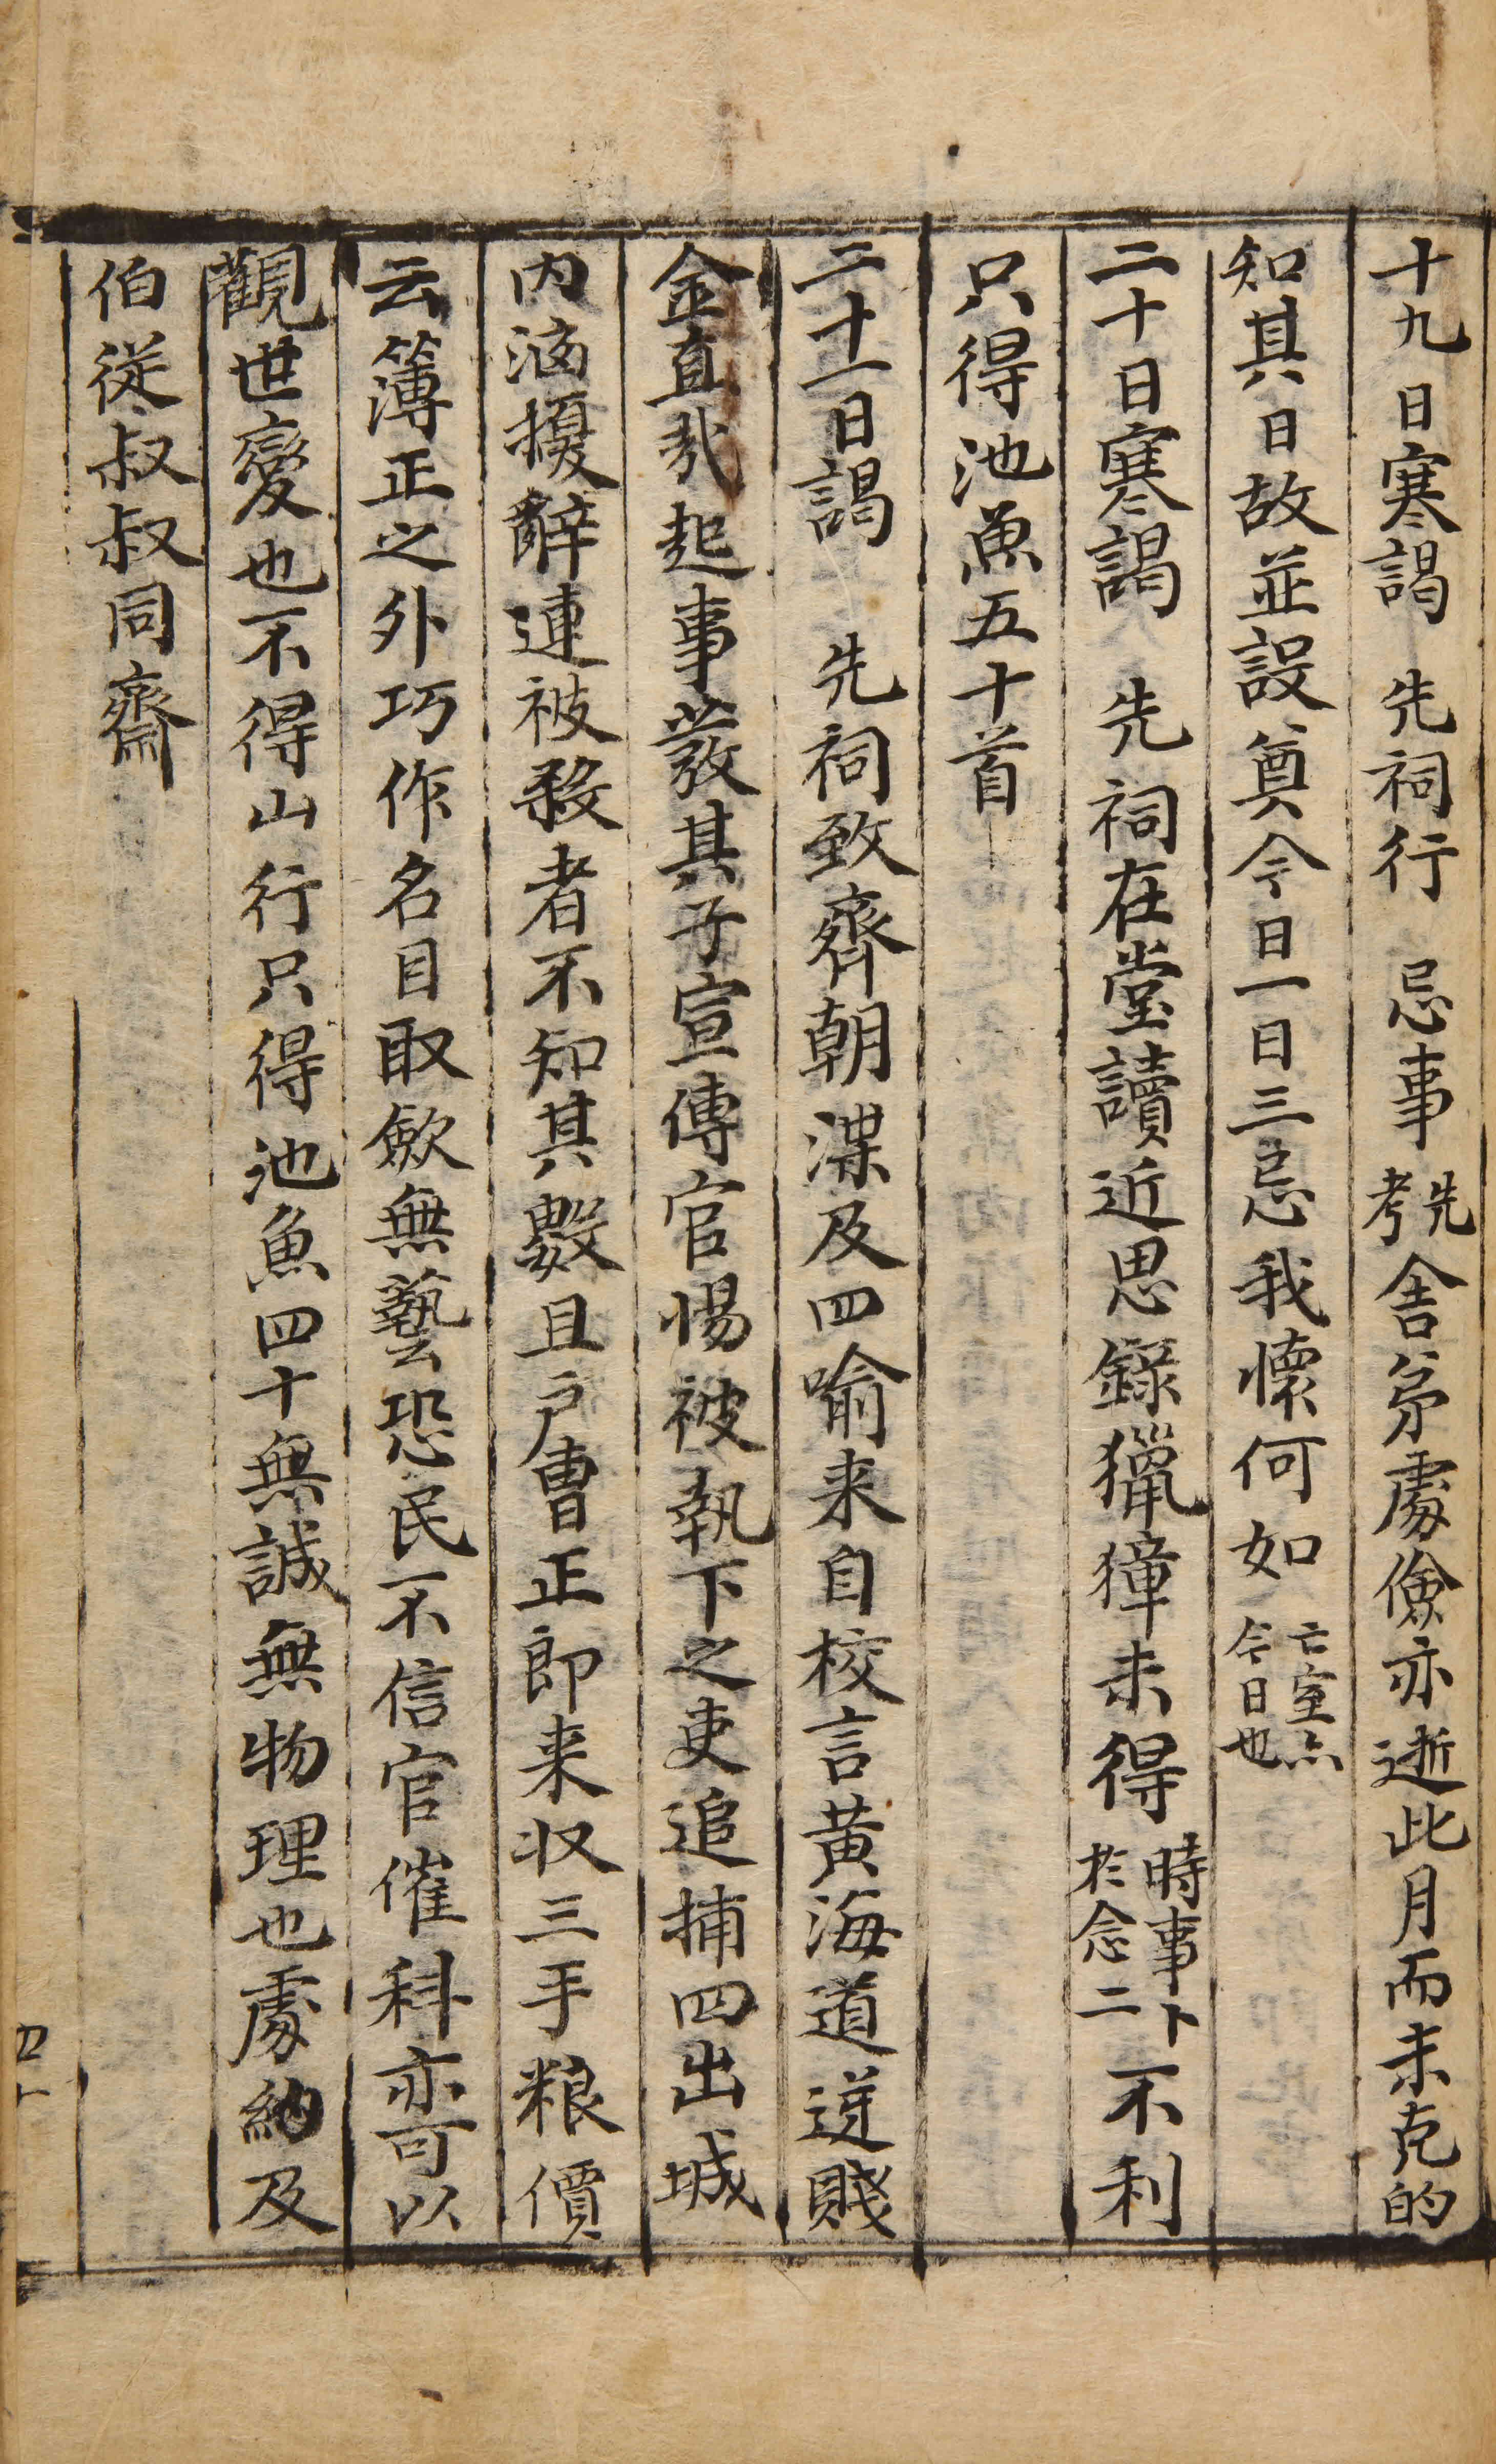 十九日寒謁 先祠行 忌事先考舎弟處儉亦逝此月而未克的
知其日故並設奠今日一日三忌我懷何如亡室亦今日也
二十日寒謁 先祠在堂讀近思錄獵獐未得時事卜於念二不利
只得池魚五十首
二十一日謁 先祠致齊朝渫及四喻来自校言黄海道逆賤
金直哉起事發其子宣傳官惕被執下之吏追捕四出城
内洶擾辭連被殺者不知其數且戸曹正郎来収三手粮價
云簿正之外巧作名目取斂無藝恐民不信官催科亦可以
觀世變也不得山行只得池魚四十無誠無物理也處納及
伯従叔叔同齋